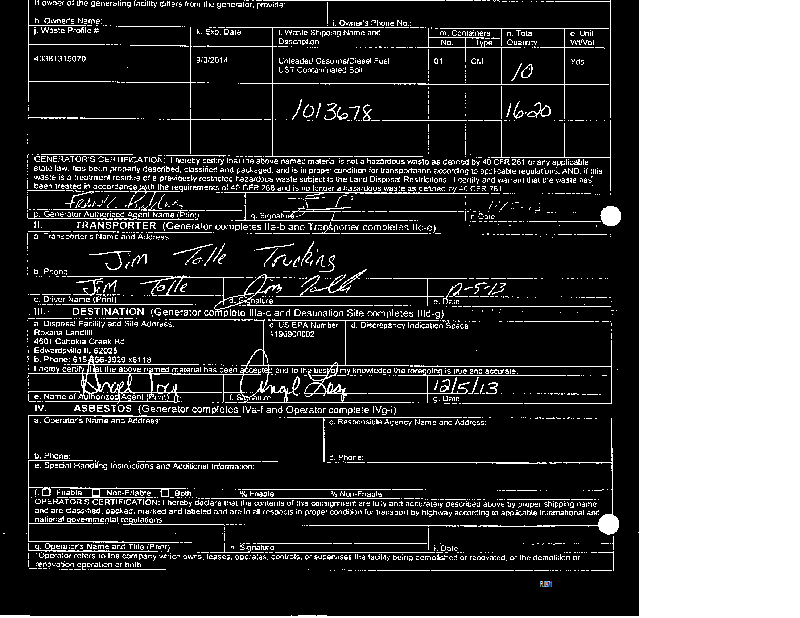 If owner of the generating facility differs from the generator, provide:
h. Owner's Name: i. Owner's Phone No.:
j. Waste Profile # k. Exp. Date l. Waste Shipping Name and Description m. Containers No. Type n. Total Quantity o. Unit Wt/Vol
9/3/2014 Unleaded Gasoline/Diesel Fuel UST Contaminated Soil 01 CM 10 Yds
1013678 1620
GENERATOR'S CERTIFICATION: I hereby certify that the above named material is not a hazardous waste as defined by 40 CFR 261 or any applicable
state law, has been properly described, classified and packaged, and is in proper condition for transportation according to applicable regulations. AND, if this
waste is a treatment residue of a previously restricted hazardous waste subject to the Land Disposal Restrictions. I certify and warrant that the waste has
been treated in accordance with the requirements of 40 CFR 268 and is no longer a hazardous waste as defined by 40 CFR 261.
p. Generator Authorized Agent Name (Print) q. Signature r. Date
II. TRANSPORTER (Generator completes IIa-b and Transporter completes IIc-e)
a. Transporter's Name and Address:
Jim Tolle Trucking
b. Phone:
Jim Tolle Jim Tolle 12-5-13
c. Driver Name (Print) d. Signature e. Date
III. DESTINATION (Generator complete IIIa-c and Destination Site completes IIId-g)
a. Disposal Facility and Site Address: c. US EPA Number d. Discrepancy Indication Space:
Roxana Landfill
4601 Cahokia Creek Rd
Edwardsville IL 62025
b. Phone:
I hereby certify that the above named material has been accepted and to the best of my knowledge the foregoing is true and accurate.
Angel 12/5/13
e. Name of Authorized Agent (Print) f. Signature g. Date
IV. ASBESTOS (Generator completes IVa-f and Operator complete IVg-i)
a. Operator's Name and Address: c. Responsible Agency Name and Address:
b. Phone: d. Phone:
e. Special Handling Instructions and Additional Information:
f. Friable Non-Friable Both % Friable % Non-Friable
OPERATOR'S CERTIFICATION: I hereby declare that the contents of this consignment are fully and accurately described above by proper shipping name
and are classified, packed, marked and labeled and are in all respects in proper condition for transport by highway according to applicable international and
national governmental regulations.
g. Operator's Name and Title (Print) h. Signature i. Date
*Operator refers to the company which owns, leases, operates, controls, or supervises the facility being demolished or renovated, or the demolition or
renovation operation or both